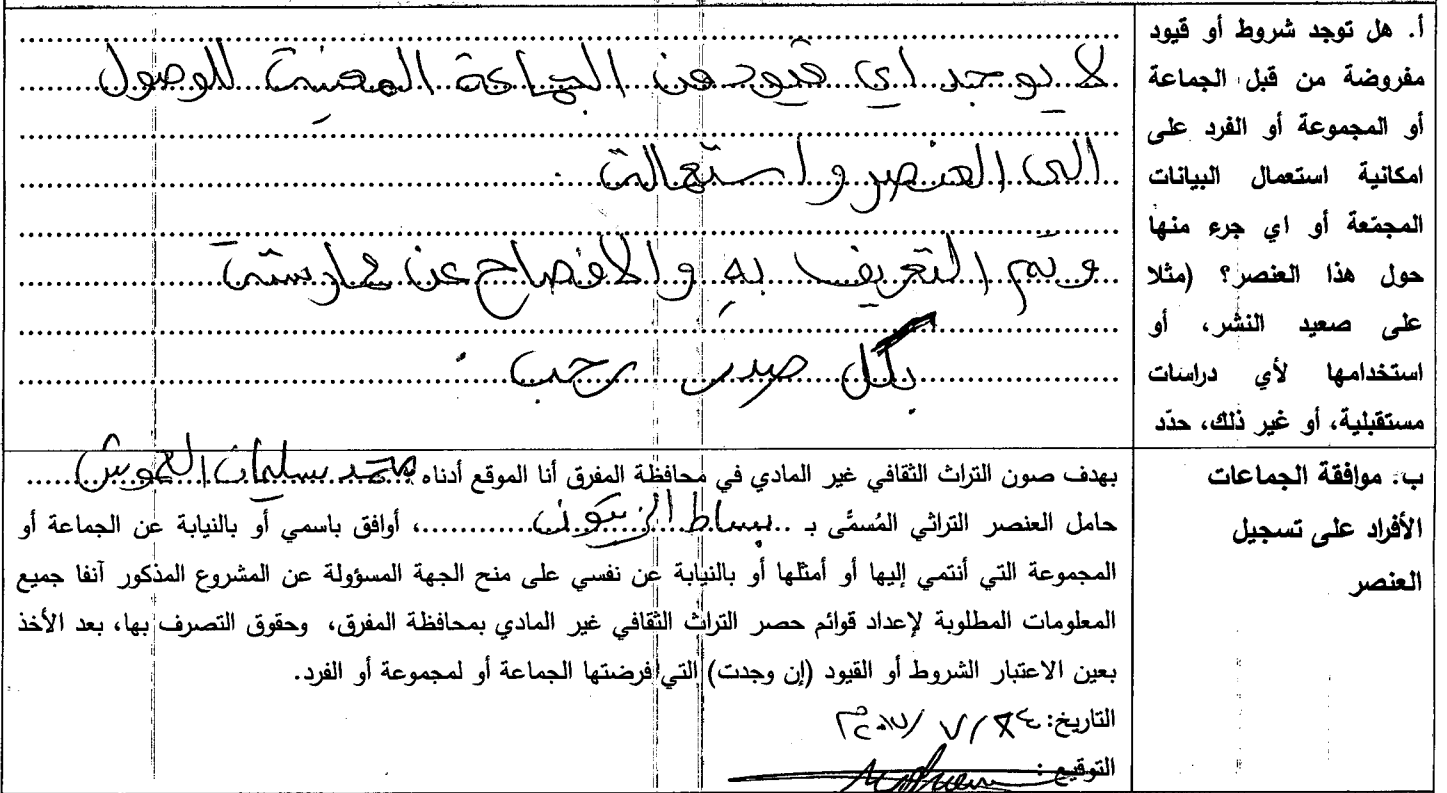 أ. هل توجد شروط أو قيود
مفروضة من قبل الجماعة
أو المجموعة أو الفرد على
امكانية استعمال البيانات
المجتعة أو اي جرء منها
حول هذا العنصر؟ (مثلا
على صعيد النشر، أو
استخدامها لأي دراسات
مستقبلية، أو غير ذلك، حدّد
لا يوجد اي قيود من الجماعة المعنية للوصول
الى العنصر واستعمالته .
ويتم التعريف به والافصاح عن ممارسته
بكل صدر رحب .
ب. موافقة الجماعات
الأفراد على تسجيل
العنصر
بهدف صون التراث الثقافي غير المادي في محافظة المفرق أنا الموقع أدناه محمد سليمان العموش
حامل العنصر التراثي المُسمَّى بـ بساط الزيتون، أوافق باسمي أو بالنيابة عن الجماعة أو
المجموعة التي أنتمي إليها أو أمثلها أو بالنيابة عن نفسي على منح الجهة المسؤولة عن المشروع المذكور آنفا جميع
المعلومات المطلوبة لإعداد قوائم حصر التراث الثقافي غير المادي بمحافظة المفرق، وحقوق التصرف بها، بعد الأخذ
بعين الاعتبار الشروط أو القيود (إن وجدت) التي فرضتها الجماعة أو لمجموعة أو الفرد.
التاريخ: ٢٤/ ٧ /٢٠١٧م
التوقيع: